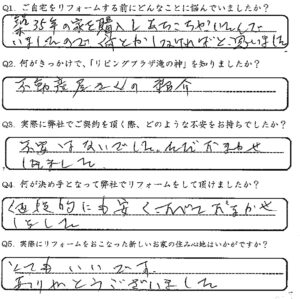 Q1. ご自宅をリフォームする前にどんなことに悩んでいましたか?
築35年の家を購入しあちこちがいたんで
いましたので何とかしなければと思いました
Q2. 何がきっかけで、「リビングプラザ滝の神」を知りましたか?
不動産屋さんの紹介
Q3. 実際に弊社でご契約を頂く際、どのような不安をお持ちでしたか?
不安はないでした
しました
Q4. 何が決め手となって弊社でリフォームをして頂けましたか?
価格的にも安くすべておまかせ
しました
Q5. 実際にリフォームをおこなった新しいお家の住み心地はいかがですか?
とてもいいです
ありがとうございました